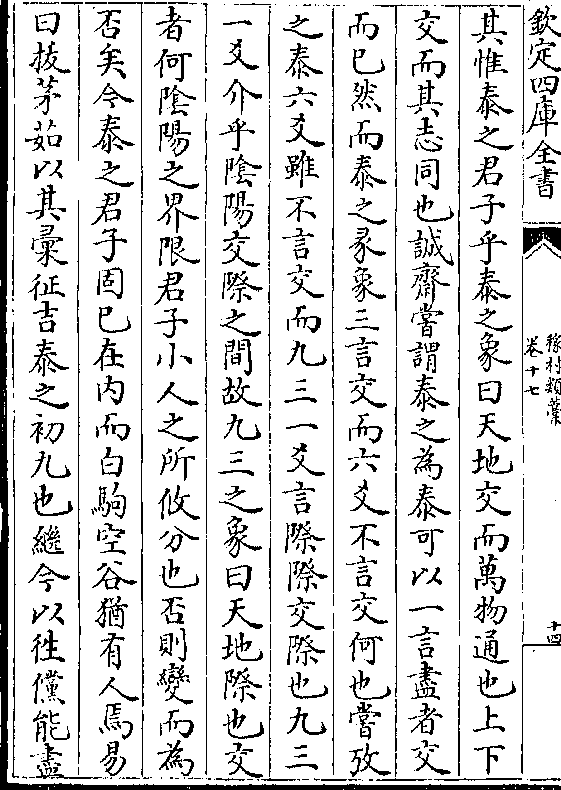 欽定四庫全書
稼村類藁
卷十七
十四
其惟泰之君子乎泰之象曰天地交而萬物通也上下
交而其志同也誠齋嘗謂泰之為泰可以一言盡者交
而已然而泰之彖象三言交而六爻不言交何也嘗攷
之泰六爻雖不言交而九三一爻言際際交際也九三
一爻介乎陰陽交際之間故九三之象曰天地際也交
者何陰陽之界限君子小人之所攸分也否則變而為
否矣今泰之君子固已在内而白駒空谷猶有人焉易
曰拔茅茹以其彙征吉泰之初九也繼今以徃儻能盡